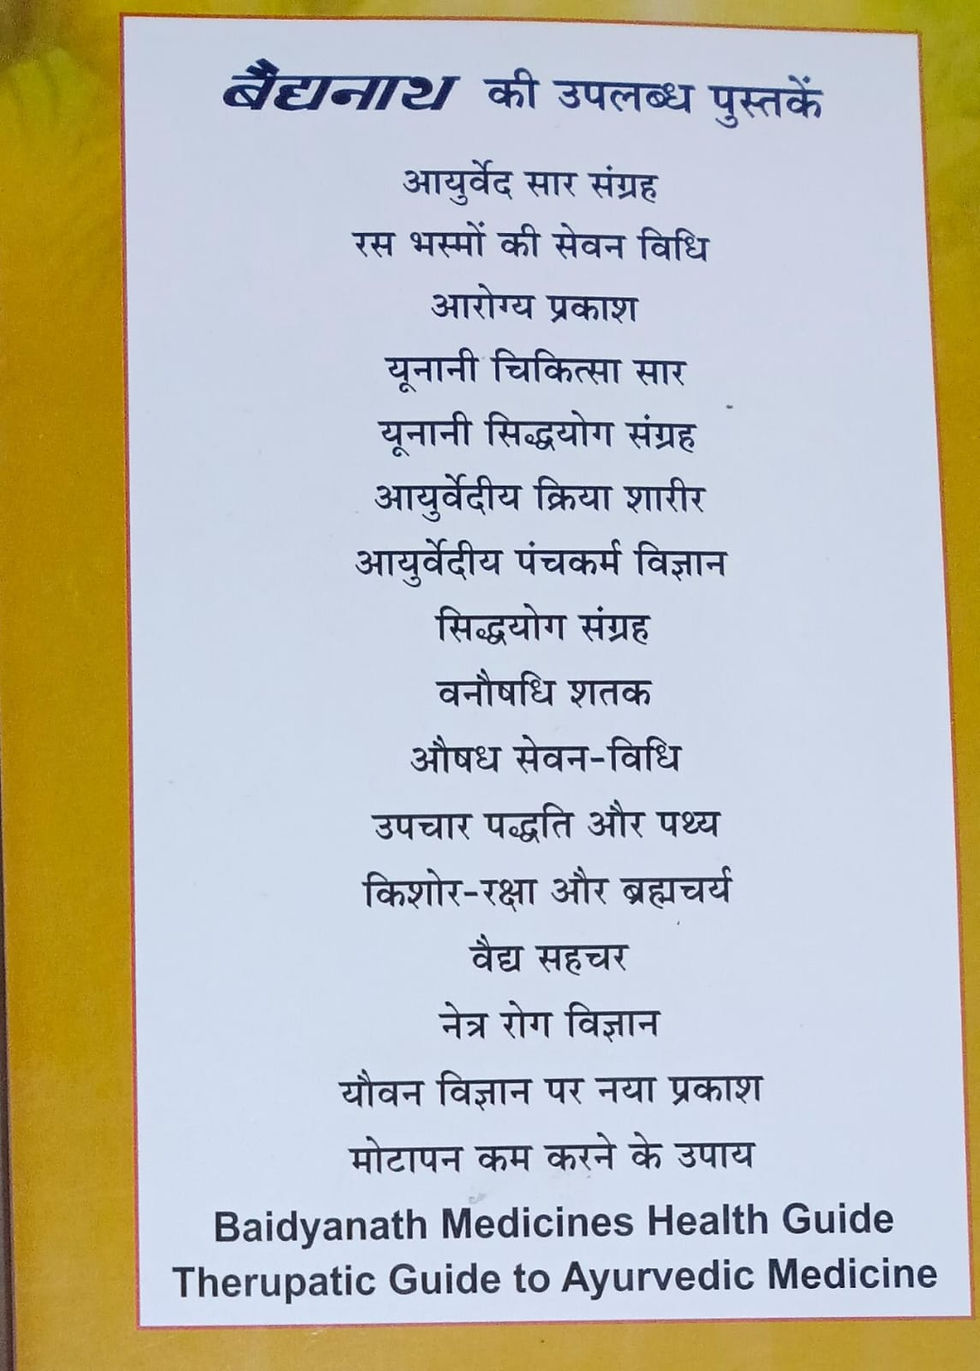 बैद्यनाथ की उपलब्ध पुस्तकें
आयुर्वेद सार संग्रह
रस भस्मों की सेवन विधि
आरोग्य प्रकाश
यूनानी चिकित्सा सार
यूनानी सिद्धयोग संग्रह
आयुर्वेदीय क्रिया शारीर
आयुर्वेदीय पंचकर्म विज्ञान
सिद्धयोग संग्रह
वनौषधि शतक
औषध सेवन-विधि
उपचार पद्धति और पथ्य
किशोर-रक्षा और ब्रह्मचर्य
वैद्य सहचर
नेत्र रोग विज्ञान
यौवन विज्ञान पर नया प्रकाश
मोटापन कम करने के उपाय
Baidyanath Medicines Health Guide
Therupatic Guide to Ayurvedic Medicine